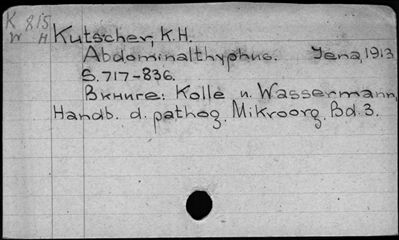 K 815
W H
Kutscher, K.H.
Abdominalthyphus. Jena, 1913
S. 717-836.
В книге: Kolle u. Wassermann,
Handb. d. pathog. Mikroorg. Bd. 3.